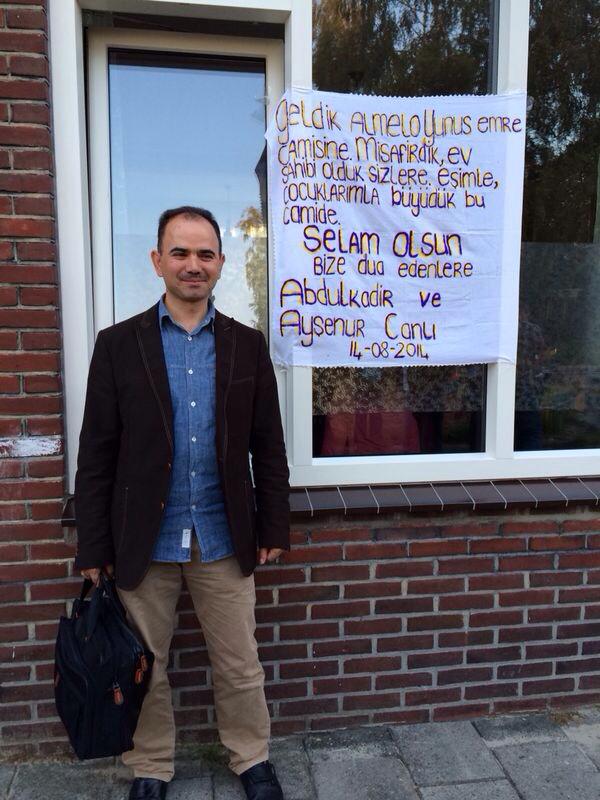 Geldik Almelo Yunus emre
camisine. Misafirdik, ev
sahibi olduk sizlere. eşimle,
çocuklarımla büyüdük bu
camide.
Selam Olsun
Bize dua edenlere
Abdulkadir ve
Ayşenur Canlı
14-08-2014